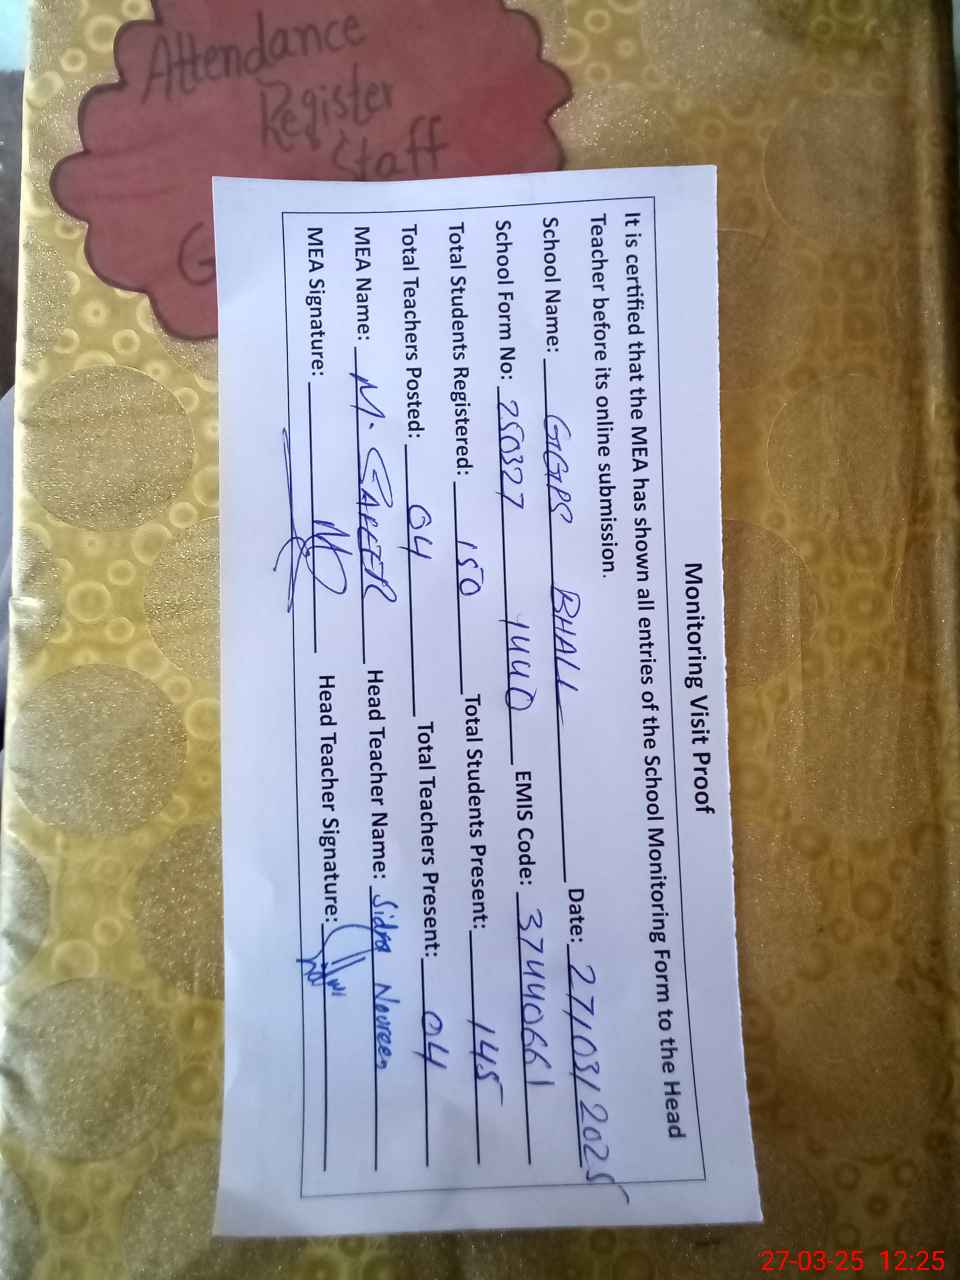 Attendance
Register
Staff
G
Monitoring Visit Proof
It is certified that the MEA has shown all entries of the School Monitoring Form to the Head
Teacher before its online submission.
School Name: GGPS BHALL Date: 27/03/2025
School Form No: 250327 1440 EMIS Code: 37440661
Total Students Registered: 150 Total Students Present: 145
Total Teachers Posted: 04 Total Teachers Present: 04
MEA Name: M. Head Teacher Name: Sidra Noureen
MEA Signature: Head Teacher Signature:
27-03-25 12:25